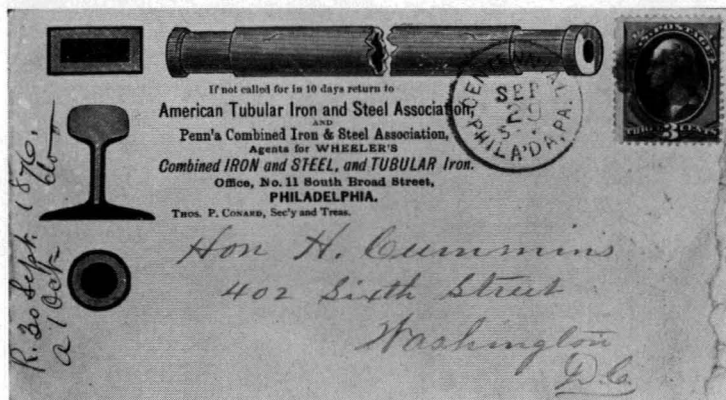 If not called for in 10 days return to
American Tubular Iron and Steel Association,
AND
Penn'a Combined Iron & Steel Association,
Agents for WHEELER'S
Combined IRON and STEEL, and TUBULAR Iron.
Office, No. 11 South Broad Street,
PHILADELPHIA.
THOS. P. CONARD, Sec'y and Treas.
CENTENNIAL
SEP
29
PHILA'DA, PA.
U.S. POSTAGE
THREE 3 CENTS
Hon H. Cummins
402 Sixth Street
Washington
D.C.
R. 30 Sept. 1876.
a 1 Oct